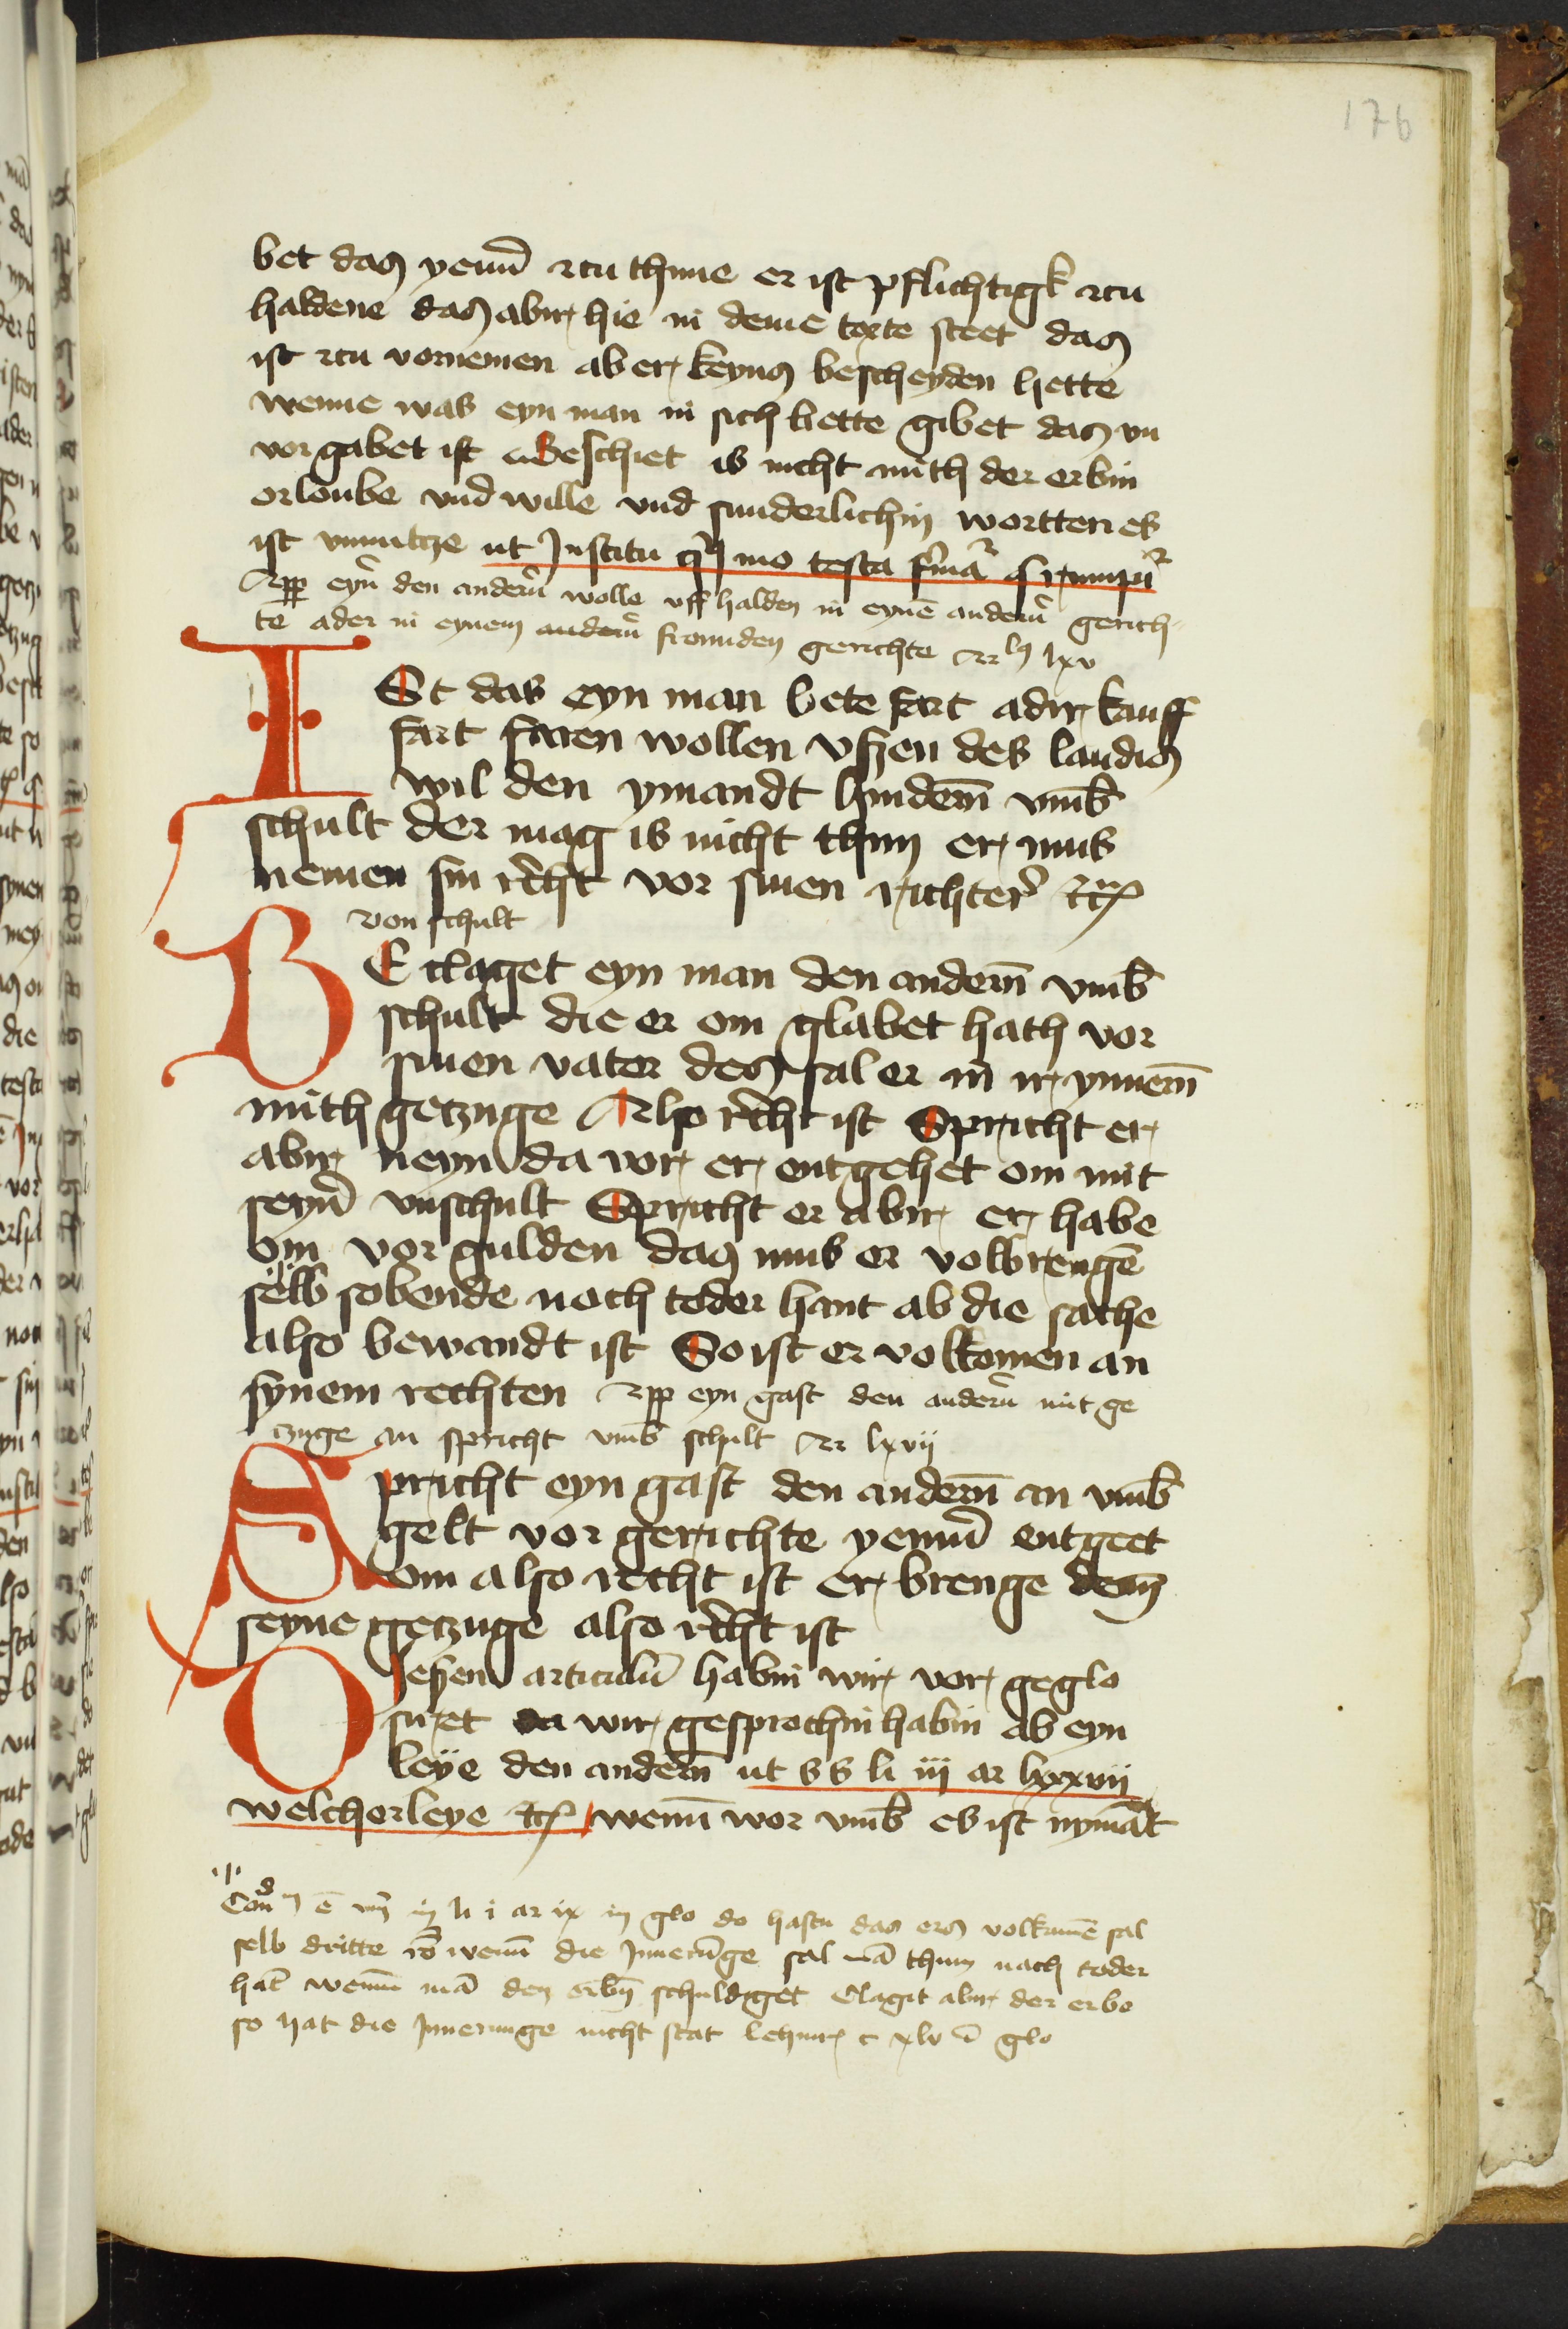 176
bet das yenn̄ czu thune er ist pflichtigk czu
haldene das abir hie in deme texte steet das
ist czu vornemen ab er keyns bescheyden hette
wenne was eyn man in sich bette gibet das vn
vorgabet ist Geschiet is nicht mith der erbin
orloube vnd wille vnd sunderlichin wortten es
ist vnnutcze ut Institu mo testa
eyn̄ den andern̄ wolle vff halden in eynē andern̄ gerich
te ader in eynem andern̄ fromden gerichte lxv
ISt das eyn man bete fart adir kauff
fart faren wollen vszen des landis
wil den ymandt hindern̄ vmb̄
schult der mag is nicht thun er mus
nemen sin rͤcht vor sinen richter̄ etc
von schult
BE claget eyn man den andern̄ vmb̄
schult die er om glabet hath vor
sinen vater des sal er in ir ynnern̄
mith getzuge Also rͤcht ist Spricht er
abir neyn da vor er entgehet om mit
seyn̄ vnschult Spricht er abir er habe
om vor gulden das mus er volbrengē
selb sobende noch toder hant ab die sache
also bewandt ist So ist er volkomen an
synem rechten eyn gast den andern̄ mit ge
tzuge an spricht vmb̄ schult lxvij
Spricht eyn gast den andern̄ an vmb̄
gelt vor gerichte yenn̄ entgeet
om also recht ist er brenge denn̄
seyne getzuge also rͤcht ist
Deszen articulū habin wir vor geglo
siret da wir gesprochin habin ab eyn
leye den andern̄ ut ss li iij ar lxxxvij
welcherleye etc wenn̄ wor vmb̄ es ist nymāt
li i ar ix in glo do hastu das ers volkumē sal
selb dritte wenn̄ die Innerūge sal mā thun nach toder
hāt wenn̄ mā den erbn̄ schuldiget Clagit abir der erbe
so hat die Innerunge nicht stat lehnre c xlv glo